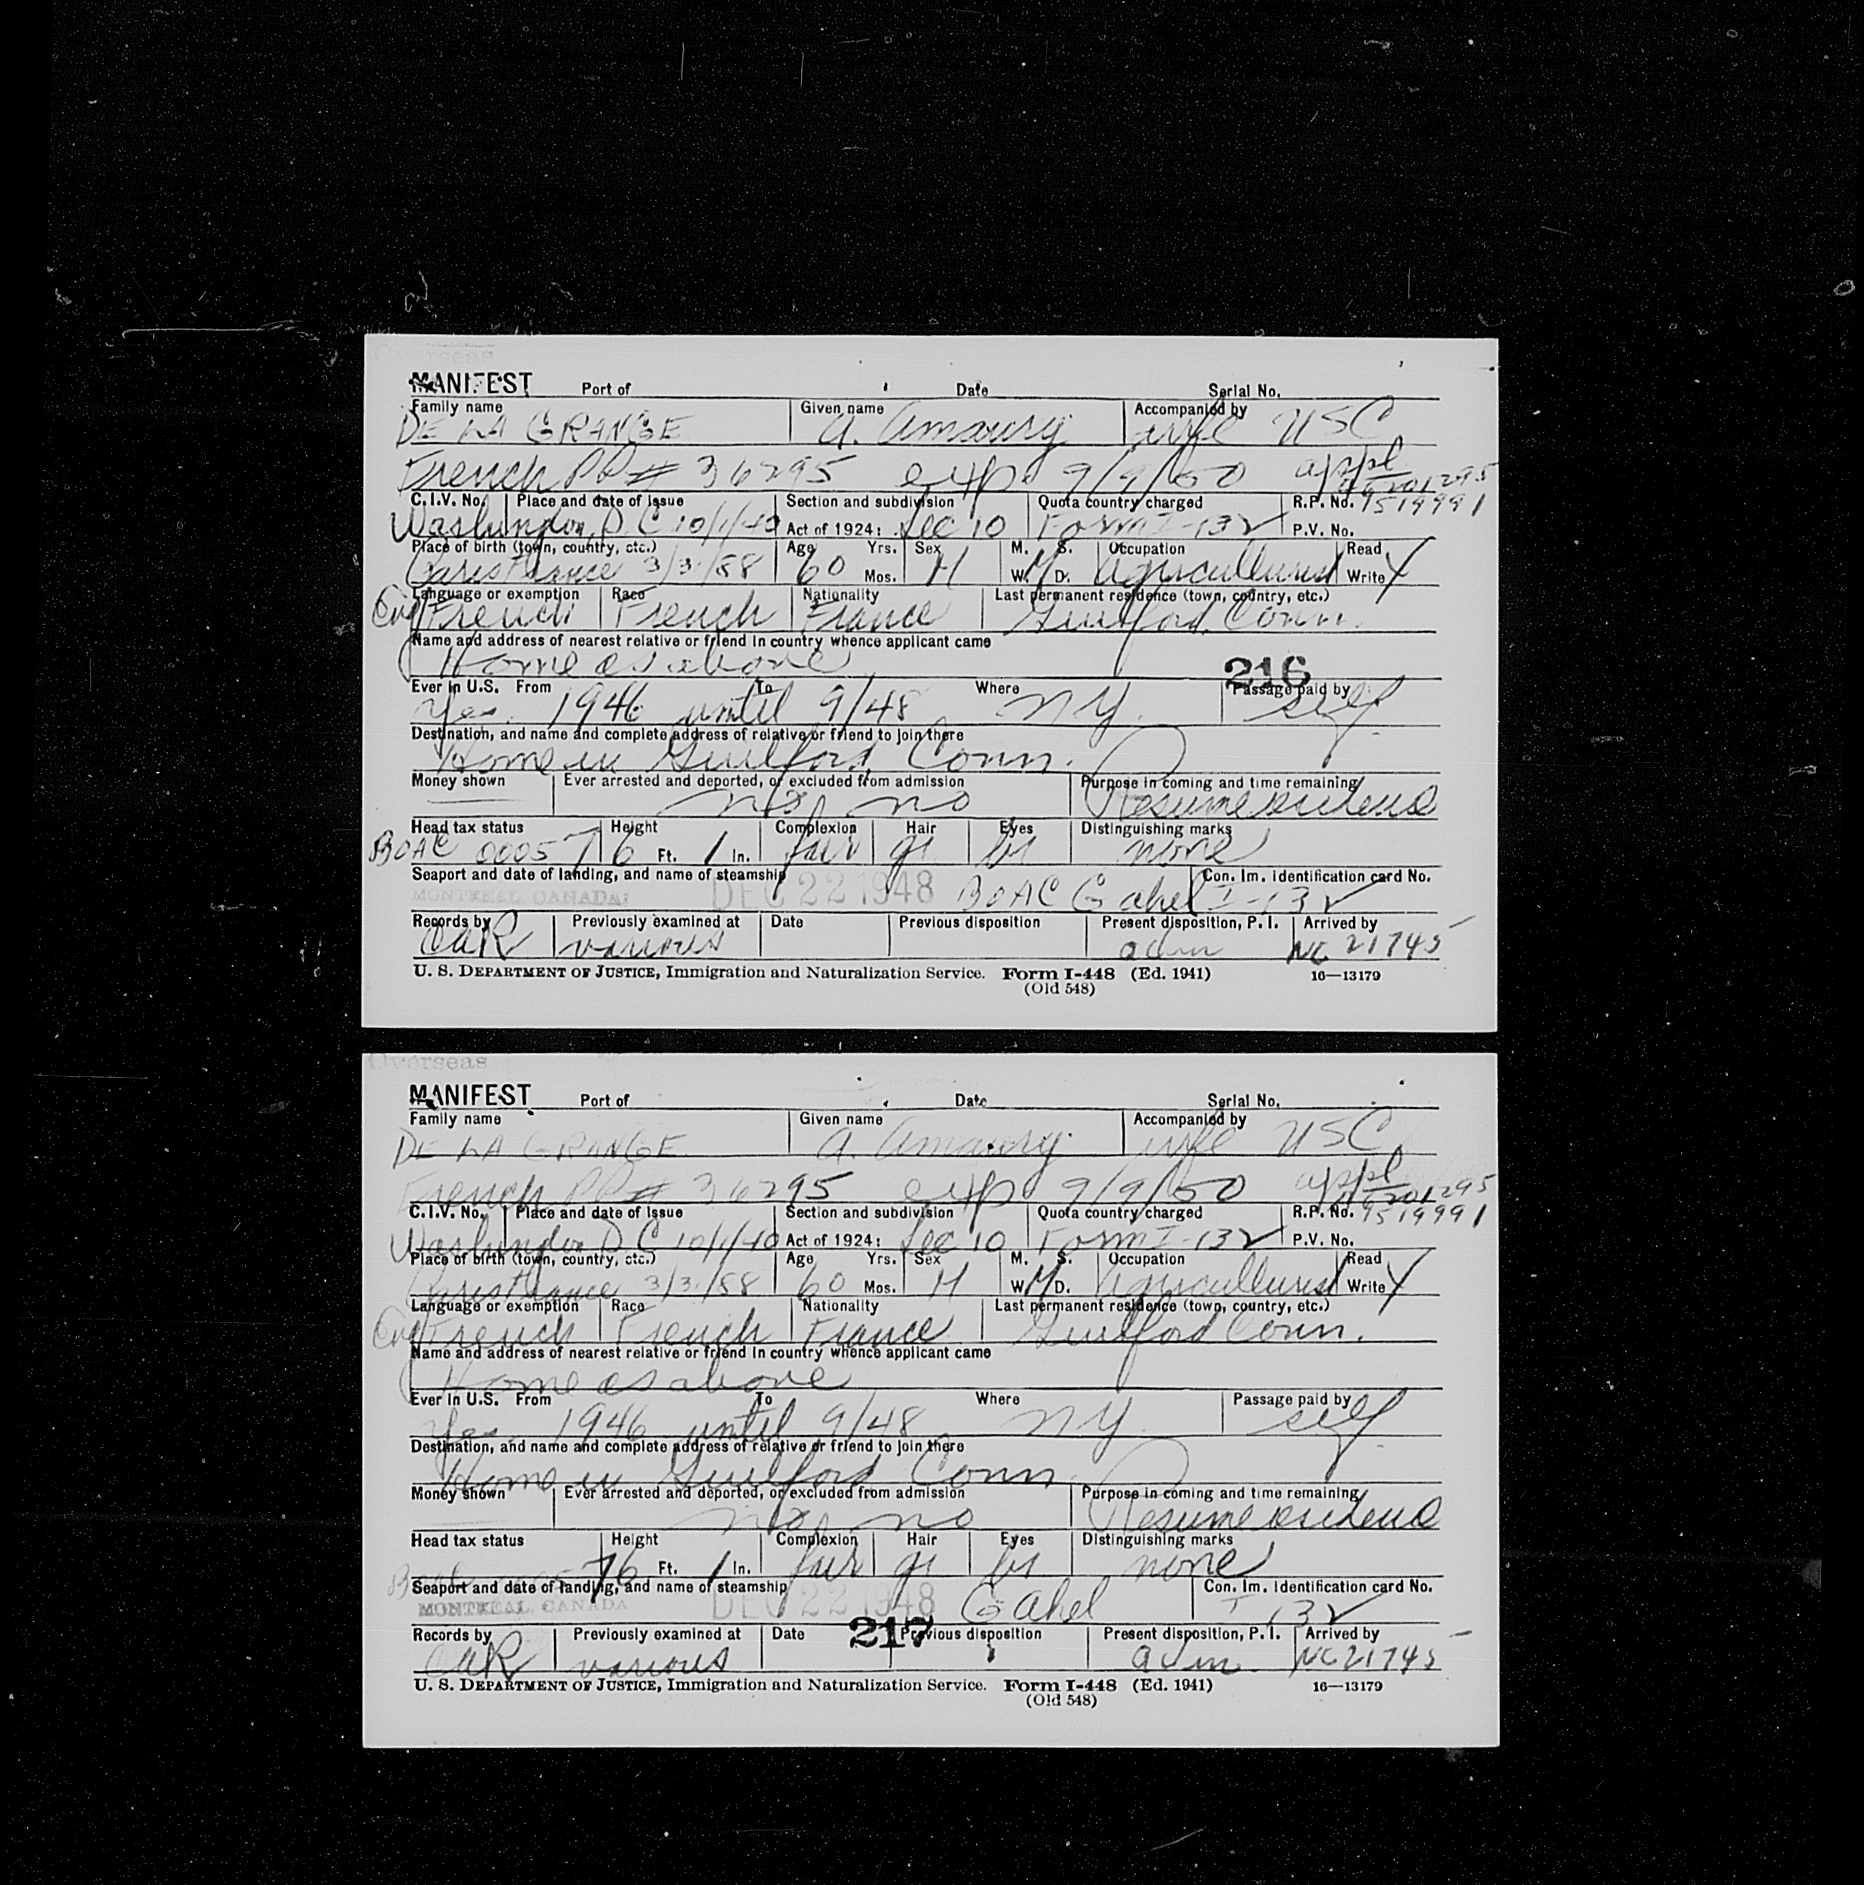 MANIFEST Port of Date Serial No.
Family name Given name Accompanied by
DE LA GRANGE A. Amaury wife USC
French PP# 36295 exp 9/9/50 appl
C.I.V. No. Place and date of issue Section and subdivision Quota country charged R.P. No. 9519991
Washington, D.C. 10/1/40 Act of 1924: Sec 10 Form I-132 P.V. No.
Place of birth (town, country, etc.) Age Yrs. Sex M. S. Occupation Read
Paris France 3/3/88 60 Mos. M W. M D. Agriculturist Write
Language or exemption Race Nationality Last permanent residence (town, country, etc.)
Eng French French France Guilford, Conn.
Name and address of nearest relative or friend in country whence applicant came
Home as above
216
Ever in U.S. From To Where Passage paid by
Yes. 1946 until 9/48 NY. self
Destination, and name and complete address of relative or friend to join there
Home in Guilford, Conn.
Money shown Ever arrested and deported, or excluded from admission Purpose in coming and time remaining
no no Resume residence
Head tax status Height Complexion Hair Eyes Distinguishing marks
BOAC 00057 6 Ft. 1 In. fair gr br none
Seaport and date of landing, and name of steamship Con. Im. Identification card No.
MONTREAL, CANADA DEC 22 1948 BOAC G ahel I-132
Records by Previously examined at Date Previous disposition Present disposition, P. I. Arrived by
various adm NC 21745
U. S. DEPARTMENT OF JUSTICE, Immigration and Naturalization Service. Form I-448 (Ed. 1941) 16—13179
(Old 548)
Overseas
MANIFEST Port of Date Serial No.
Family name Given name Accompanied by
DE LA GRANGE A. Amaury wife USC
French PP# 36295 exp 9/9/50 appl
C.I.V. No. Place and date of issue Section and subdivision Quota country charged R.P. No. 9519991
Washington D.C. 10/1/40 Act of 1924: Sec 10 Form I-132 P.V. No.
Place of birth (town, country, etc.) Age Yrs. Sex M. S. Occupation Read
Paris France 3/3/88 60 Mos. M W. M D. Agriculturist Write
Language or exemption Race Nationality Last permanent residence (town, country, etc.)
Eng French French France Guilford Conn.
Name and address of nearest relative or friend in country whence applicant came
Home as above
Ever in U.S. From To Where Passage paid by
Yes. 1946 until 9/48 NY self
Destination, and name and complete address of relative or friend to join there
Home in Guilford, Conn.
Money shown Ever arrested and deported, or excluded from admission Purpose in coming and time remaining
no no Resume residence
Head tax status Height Complexion Hair Eyes Distinguishing marks
6 Ft. 1 In. fair gr br none
Seaport and date of landing, and name of steamship Con. Im. Identification card No.
MONTREAL, CANADA DEC 22 1948 G ahel I-132
217
Records by Previously examined at Date Previous disposition Present disposition, P. I. Arrived by
various adm. NC 21745
U. S. DEPARTMENT OF JUSTICE, Immigration and Naturalization Service. Form I-448 (Ed. 1941) 16—13179
(Old 548)